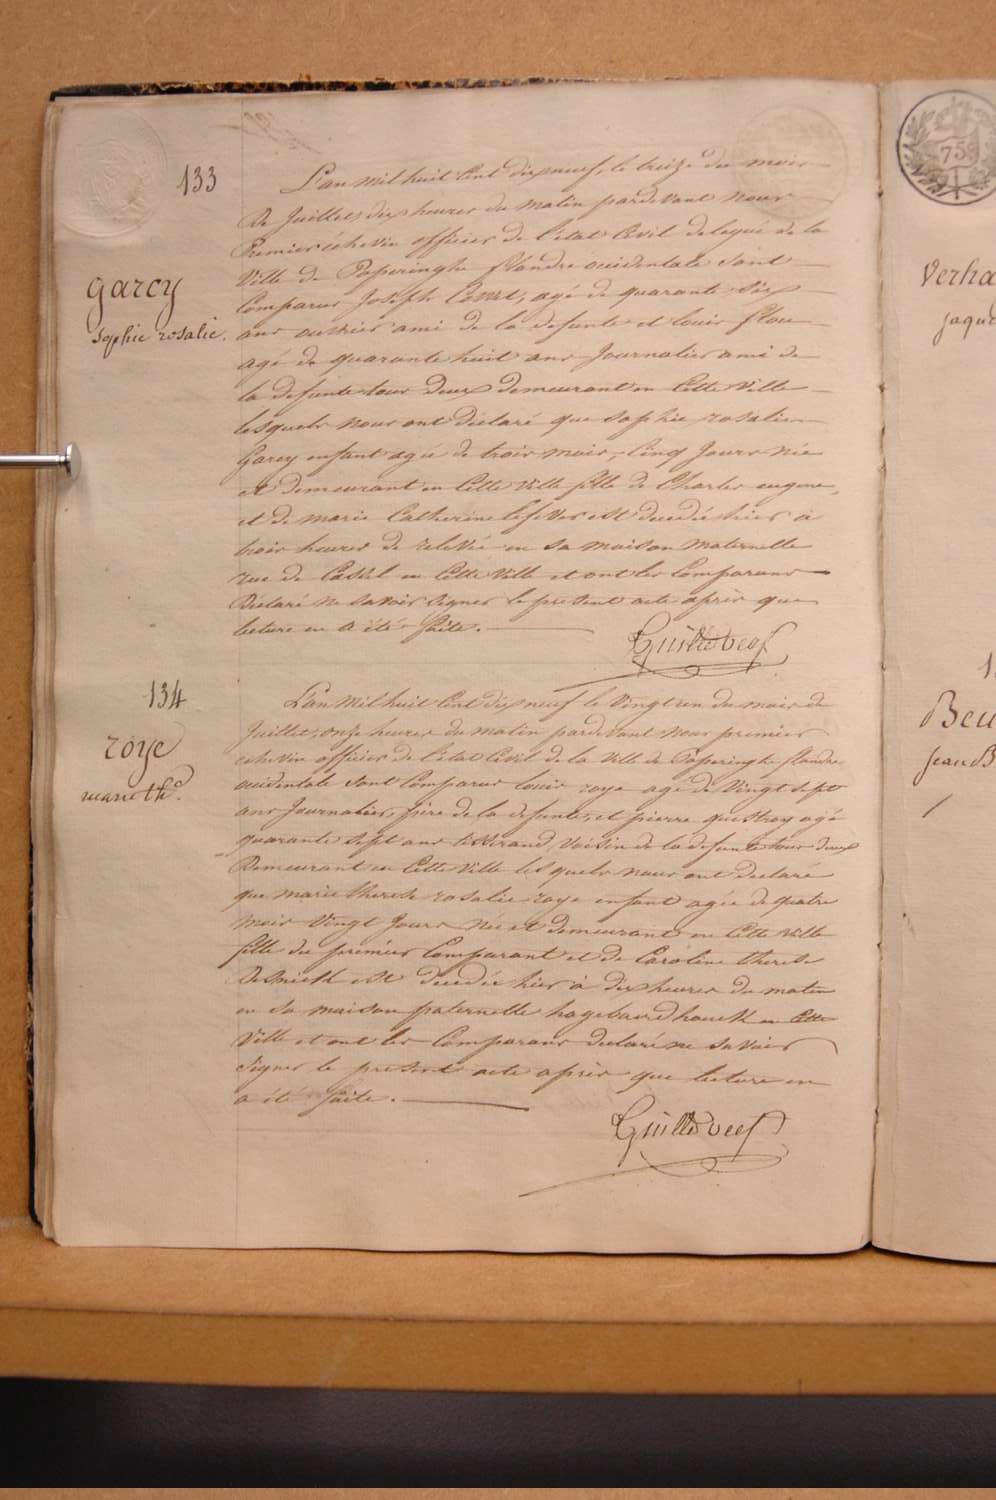 133
Garcy
Sophie rosalie.
L'an mil huit Cent dix neuf, le treize du mois
De Juillet, dix heures du matin pardevant nous
Premier échevin officier de l'état Civil delegué de la
Ville de Poperinghe flandre occidentale Sont
Comparus Joseph agé de quarante Six
ans ouvrier ami de la defunte et louis flou
agé de quarante huit ans Journalier ami de
la defunte tous deux demeurant en Cette Ville
lesquels nous ont déclaré que sophie rosalie
Garcy enfant agée de trois mois, Cinq Jours née
et demeurant en Cette Ville fille de Charles eugene,
et de marie Catherine lefever est decedée hier à
trois heures de relevée en sa maison maternelle
rue de Cassel en Cette Ville et ont les Comparans
Déclaré ne savoir signer le present acte après que
lecture en a été faite.
134
roye
marie th.e
L'an Mil huit Cent dix neuf le Vingt un du mois de
Juillet, onze heures du matin pardevant nous premier
echevin officier de l'état Civil de la Ville de Poperinghe flandre
occidentale Sont Comparus louis roye agé de Vingt Sept
ans Journalier, père de la defunte, et pierre agé
quarante Sept ans tisserand, Voisin de la defunte tous deux
Demeurant en Cette Ville lesquels nous ont declaré
que marie therese rosalie roye enfant agée de quatre
mois Vingt Jours née et demeurant en Cette Ville
fille du premier Comparant et de Caroline therese
est decedée hier à dix heures du matin
en Sa maison paternelle en Cette
Ville et ont les Comparans declaré ne Savoir
Signer le present acte après que lecture en
a été faite.
75
Verha
jaque
Beu
jean B